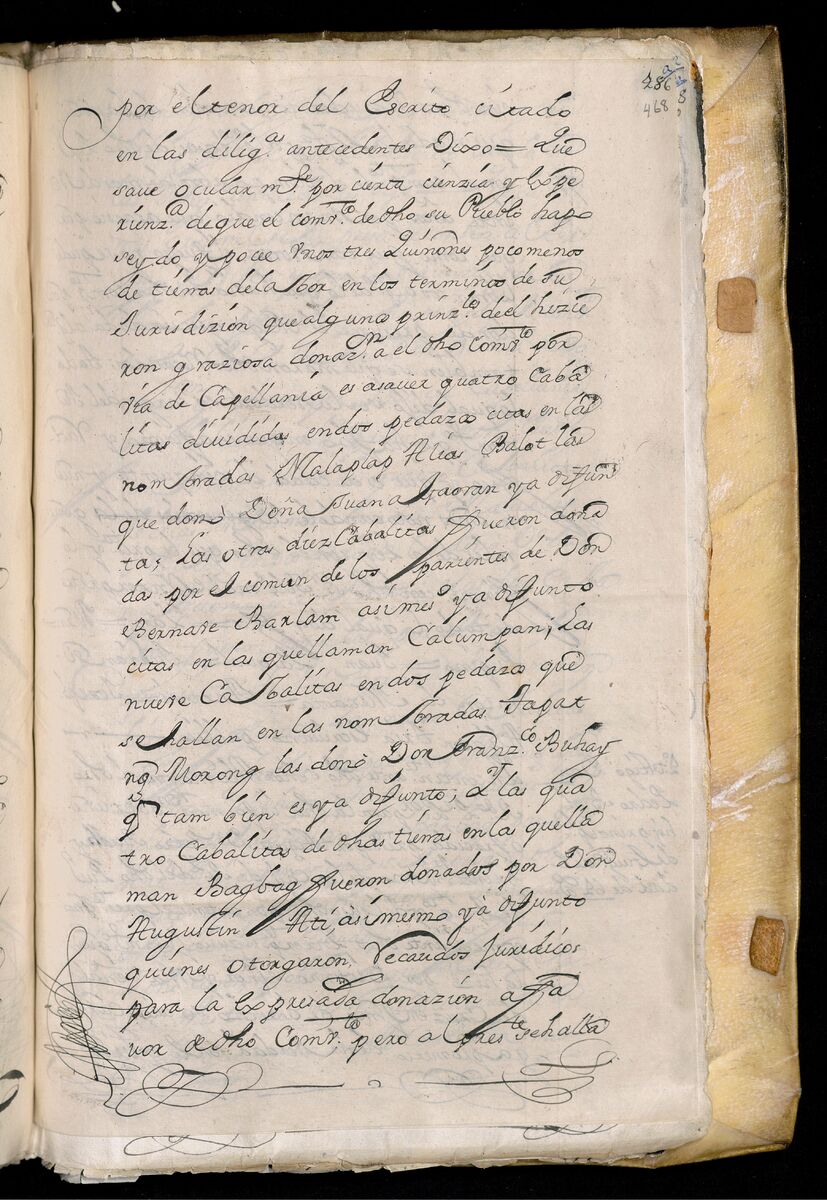 286
468
por el tenor del Escrito citado
en las dilig.as antecedentes Dixo = Que
save ocular m.te por cierta cienzia y Expe
rienz.a de que el Comv.to de dho su Pueblo hapo
seydo y pocee Vnos tres Quiñones poco menos
de tierras de labor en los terminos de su
Jurisdizion que algunos prinz.les de el hizie
ron graziosa donaz.n a el dho Comv.to por
via de Capellania es asaver quatro Caba
litas divididas en dos pedazos citas en las
nombradas Malapiap Alias Balot las
que donò Doña Juana Gaoran ya difun
ta; Las otras diez Cabalitas fueron dona
das por el comun de los parientes de Don
Bernave Barlam asimes.o ya difunto
citas en las que llaman Calumpan; Las
nueve Cabalitas en dos pedazos que
se hallan en las nombradas Tapat
ng Morong las donò Don Franz.co Buhay
q tambien es ya difunto; Y las qua
tro Cabalitas de dhas tierras en las que lla
man Bagbag fueron donados por Don
Augustin Ati, asimesmo yà difunto
quienes otorgaron Recaudos Juridicos
para la Expresada donazion a fa
vor de dho Comv.to pero al pres.te se halla